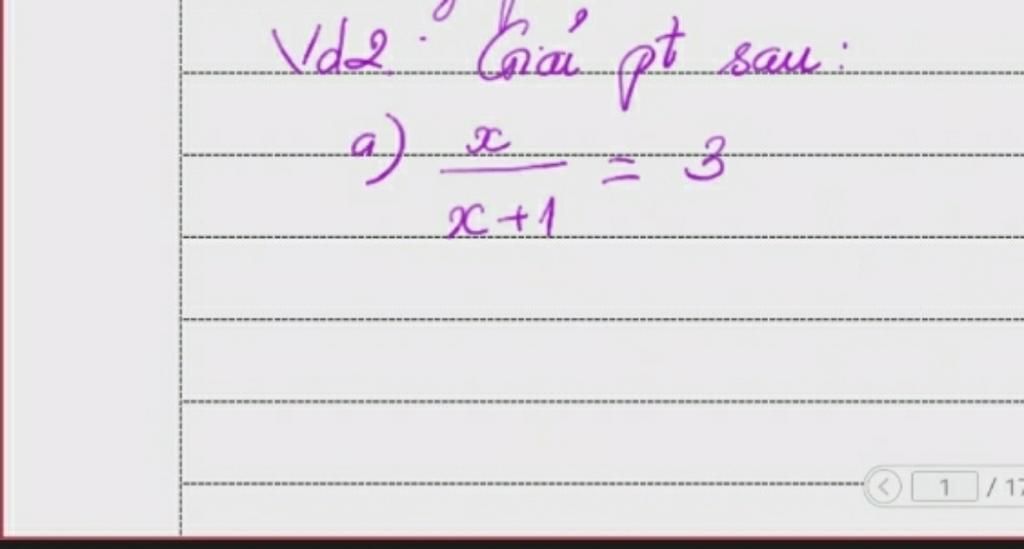 Vd2: Giải pt sau:
a) x/(x+1) = 3
1 / 17